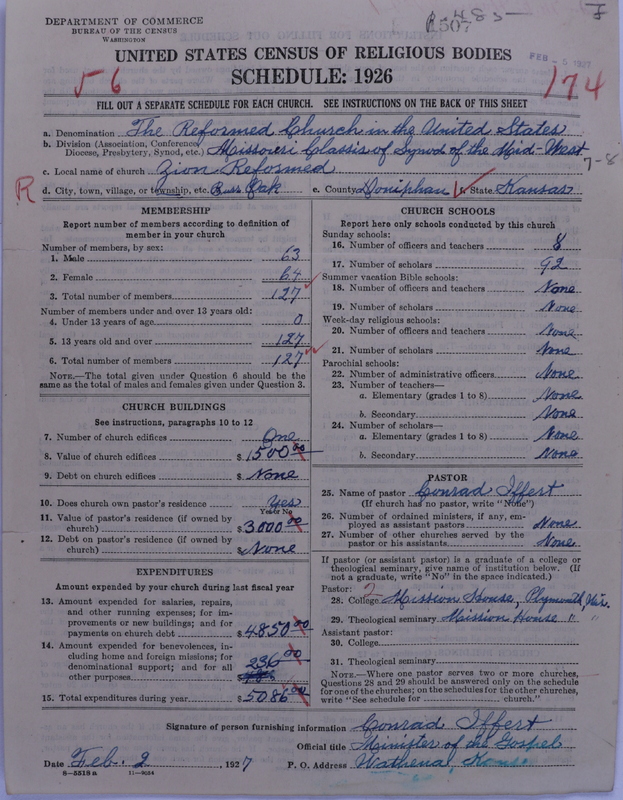 DEPARTMENT OF COMMERCE
BUREAU OF THE CENSUS
WASHINGTON
UNITED STATES CENSUS OF RELIGIOUS BODIES
SCHEDULE: 1926
56
174
FILL OUT A SEPARATE SCHEDULE FOR EACH CHURCH. SEE INSTRUCTIONS ON THE BACK OF THIS SHEET
a. Denomination The Reformed Church in the United States
b. Division (Association, Conference, Diocese, Presbytery, Synod, etc.) Missouri Classis of Synod of the Mid-West
7-8
c. Local name of church Zion Reformed
R
d. City, town, village, or township, etc. Burr Oak e. County Doniphan f. State Kansas
MEMBERSHIP
Report number of members according to definition of
member in your church
Number of members, by sex:
1. Male 63
2. Female 64
3. Total number of members 127
Number of members under and over 13 years old:
4. Under 13 years of age 0
5. 13 years old and over 127
6. Total number of members 127
NOTE.—The total given under Question 6 should be the
same as the total of males and females given under Question 3.
CHURCH BUILDINGS
See instructions, paragraphs 10 to 12
7. Number of church edifices One
8. Value of church edifices $ 1500 00
9. Debt on church edifices $ None
10. Does church own pastor's residence Yes
Yes or No
11. Value of pastor's residence (if owned by
church) $ 3000 00
12. Debt on pastor's residence (if owned by
church) $ None
EXPENDITURES
Amount expended by your church during last fiscal year
13. Amount expended for salaries, repairs,
and other running expenses; for im-
provements or new buildings; and for
payments on church debt $ 4850 00
14. Amount expended for benevolences, in-
cluding home and foreign missions; for
denominational support; and for all
other purposes 236 00
15. Total expenditures during year $ 5086 00
CHURCH SCHOOLS
Report here only schools conducted by this church
Sunday schools:
16. Number of officers and teachers 8
17. Number of scholars 92
Summer vacation Bible schools:
18. Number of officers and teachers None
19. Number of scholars None
Week-day religious schools:
20. Number of officers and teachers None
21. Number of scholars None
Parochial schools:
22. Number of administrative officers None
23. Number of teachers—
a. Elementary (grades 1 to 8) None
b. Secondary None
24. Number of scholars—
a. Elementary (grades 1 to 8) None
b. Secondary None
PASTOR
25. Name of pastor Conrad Iffert
(If church has no pastor, write "None")
26. Number of ordained ministers, if any, em-
ployed as assistant pastors None
27. Number of other churches served by the
pastor or his assistants None
If pastor (or assistant pastor) is a graduate of a college or
theological seminary, give name of institution below. (If
not a graduate, write "No" in the space indicated.)
Pastor: 2
28. College Mission House, Plymouth, Wis.
29. Theological seminary Mission House " "
Assistant pastor:
30. College
31. Theological seminary
NOTE.—Where one pastor serves two or more churches,
Questions 28 and 29 should be answered only on the schedule
for one of the churches; on the schedules for the other churches,
write "See schedule for church."
Signature of person furnishing information Conrad Iffert
Official title Minister of the Gospel
Date Feb. 2, 1927 P. O. Address Wathena, Kans
8-5518 a 11-9024